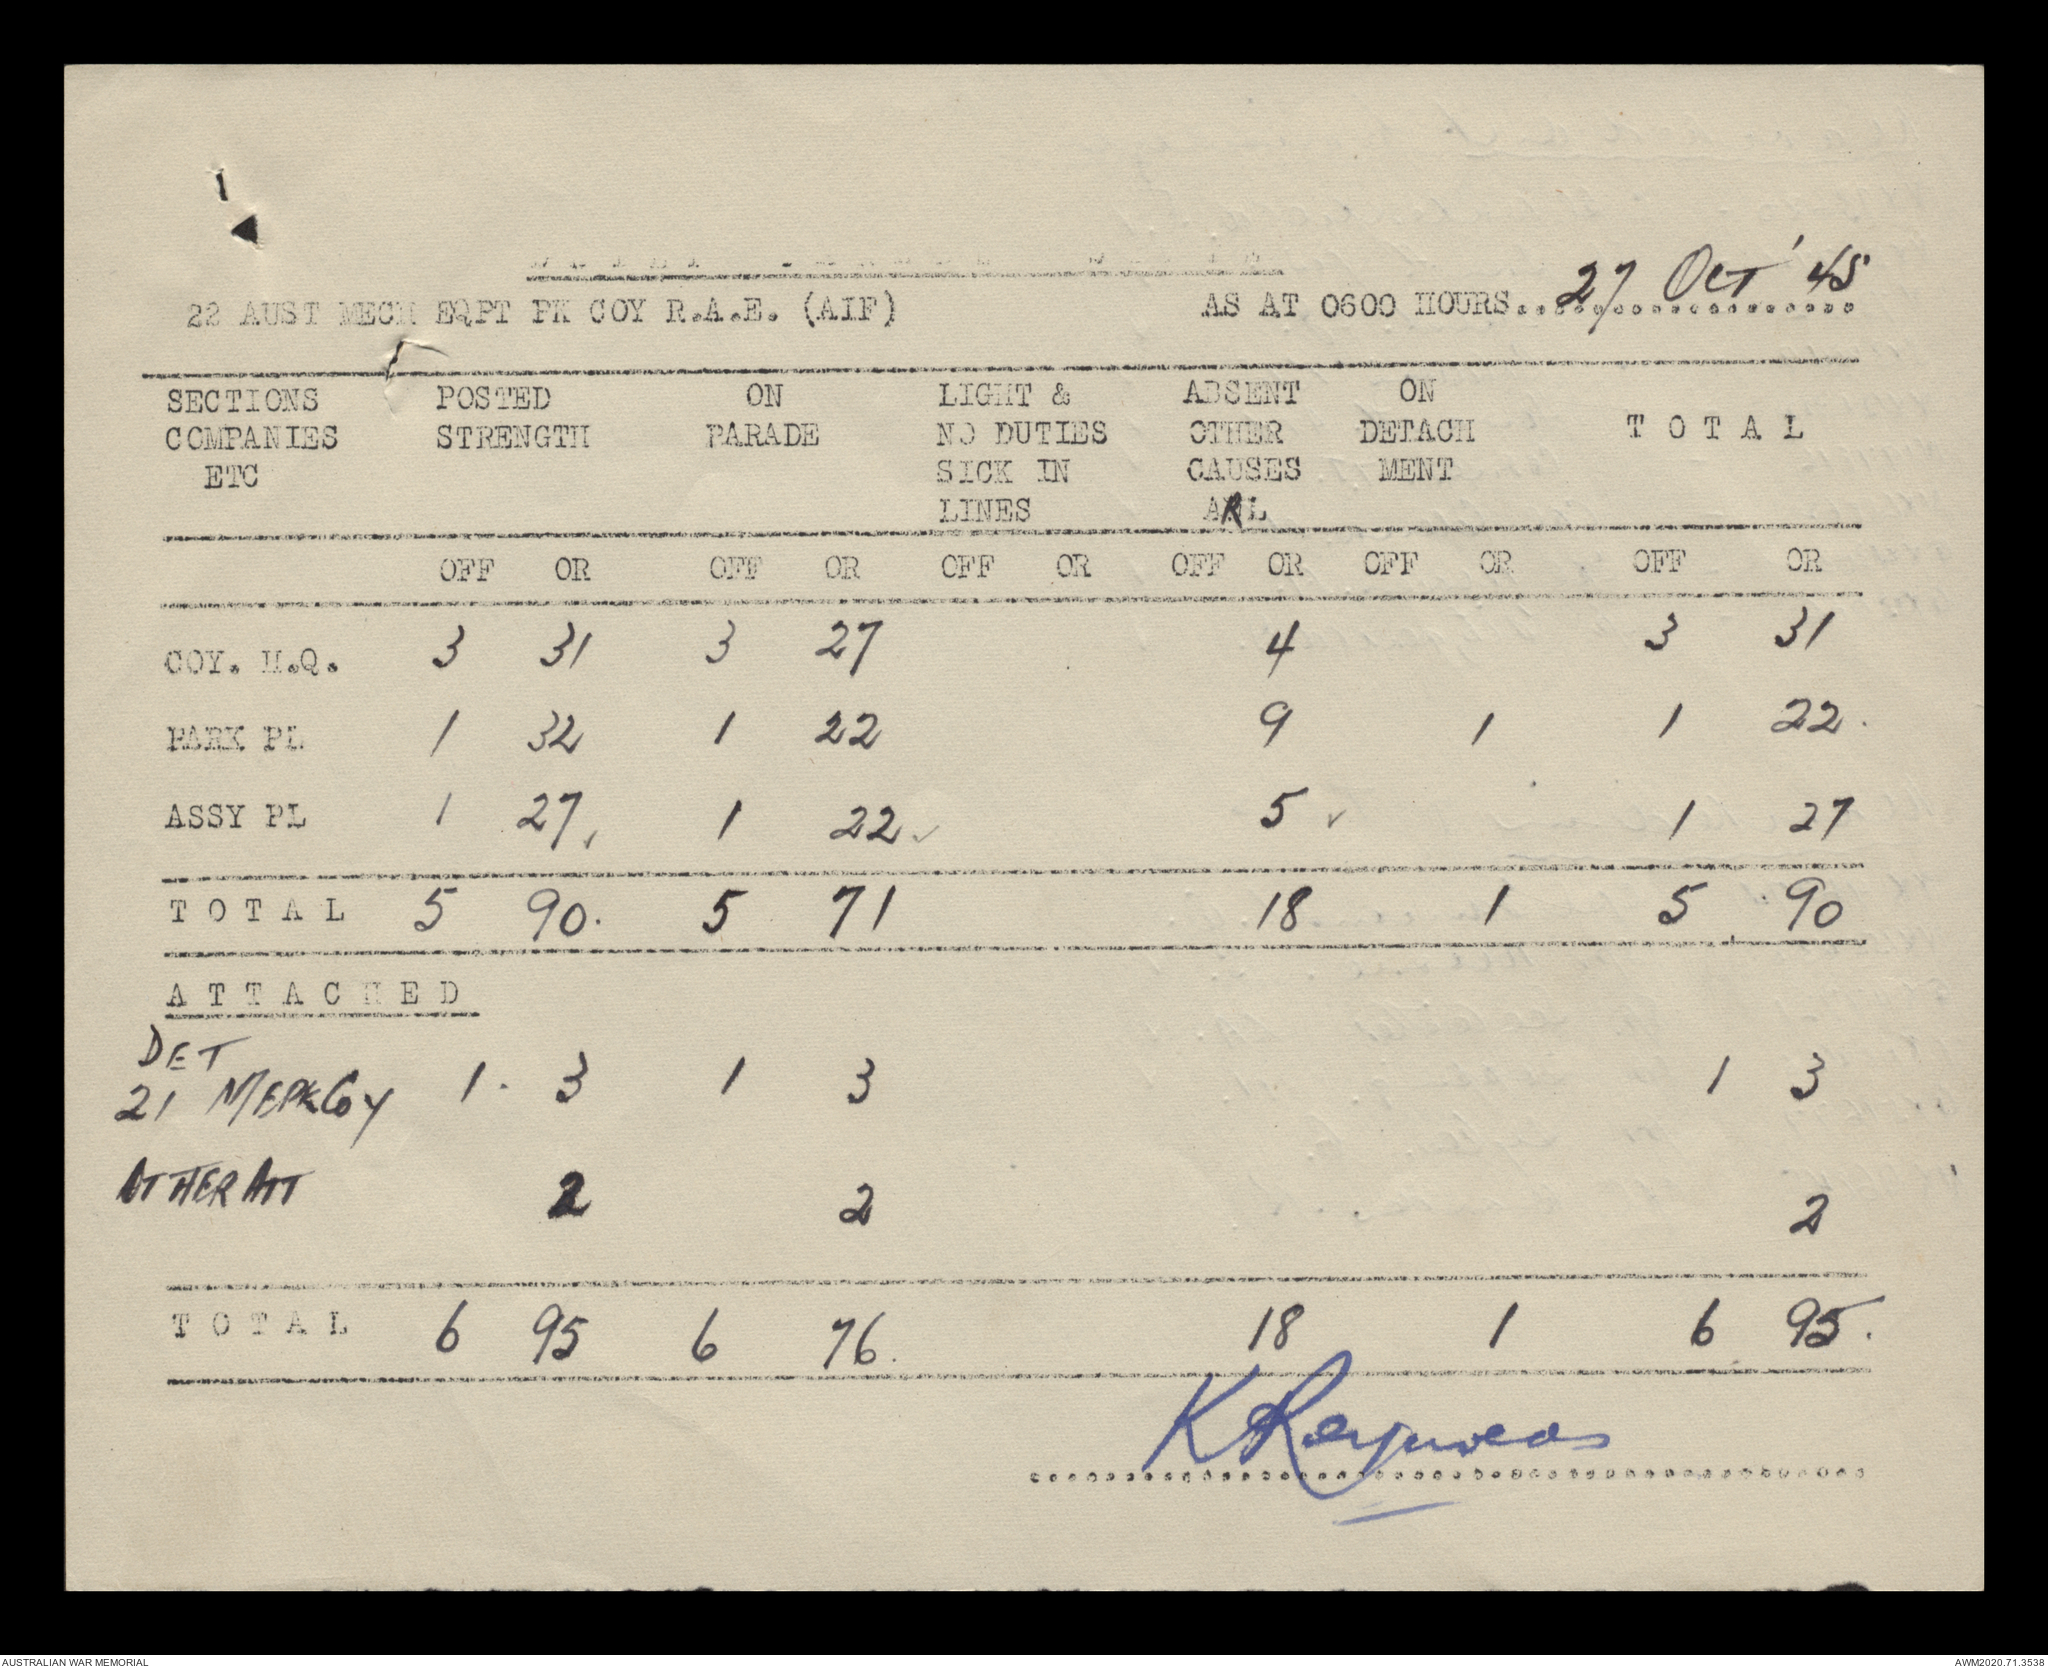 22 AUST MECH EQPT PK COY R.A.E. (AIF) AS AT 0600 HOURS 27 OCT '45
SECTIONS POSTED ON LIGHT & ABSENT ON
COMPANIES STRENGTH PARADE NO DUTIES OTHER DETACH T O T A L
ETC SICK IN CAUSES MENT
LINES ARL
OFF OR OFF OR OFF OR OFF OR OFF OR OFF OR
COY. H.Q. 3 31 3 27 4 3 31
PARK PL 1 32 1 22 9 1 1 22.
ASSY PL 1 27 1 22 5 1 27
T O T A L 5 90. 5 71 18 1 5 90
A T T A C H E D
DET
21 M/EPkCoy 1. 3 1 3 1 3
OTHER ATT 2 2 2
T O T A L 6 95 6 76. 18 1 6 95.
AUSTRALIAN WAR MEMORIAL AWM2020.71.3538